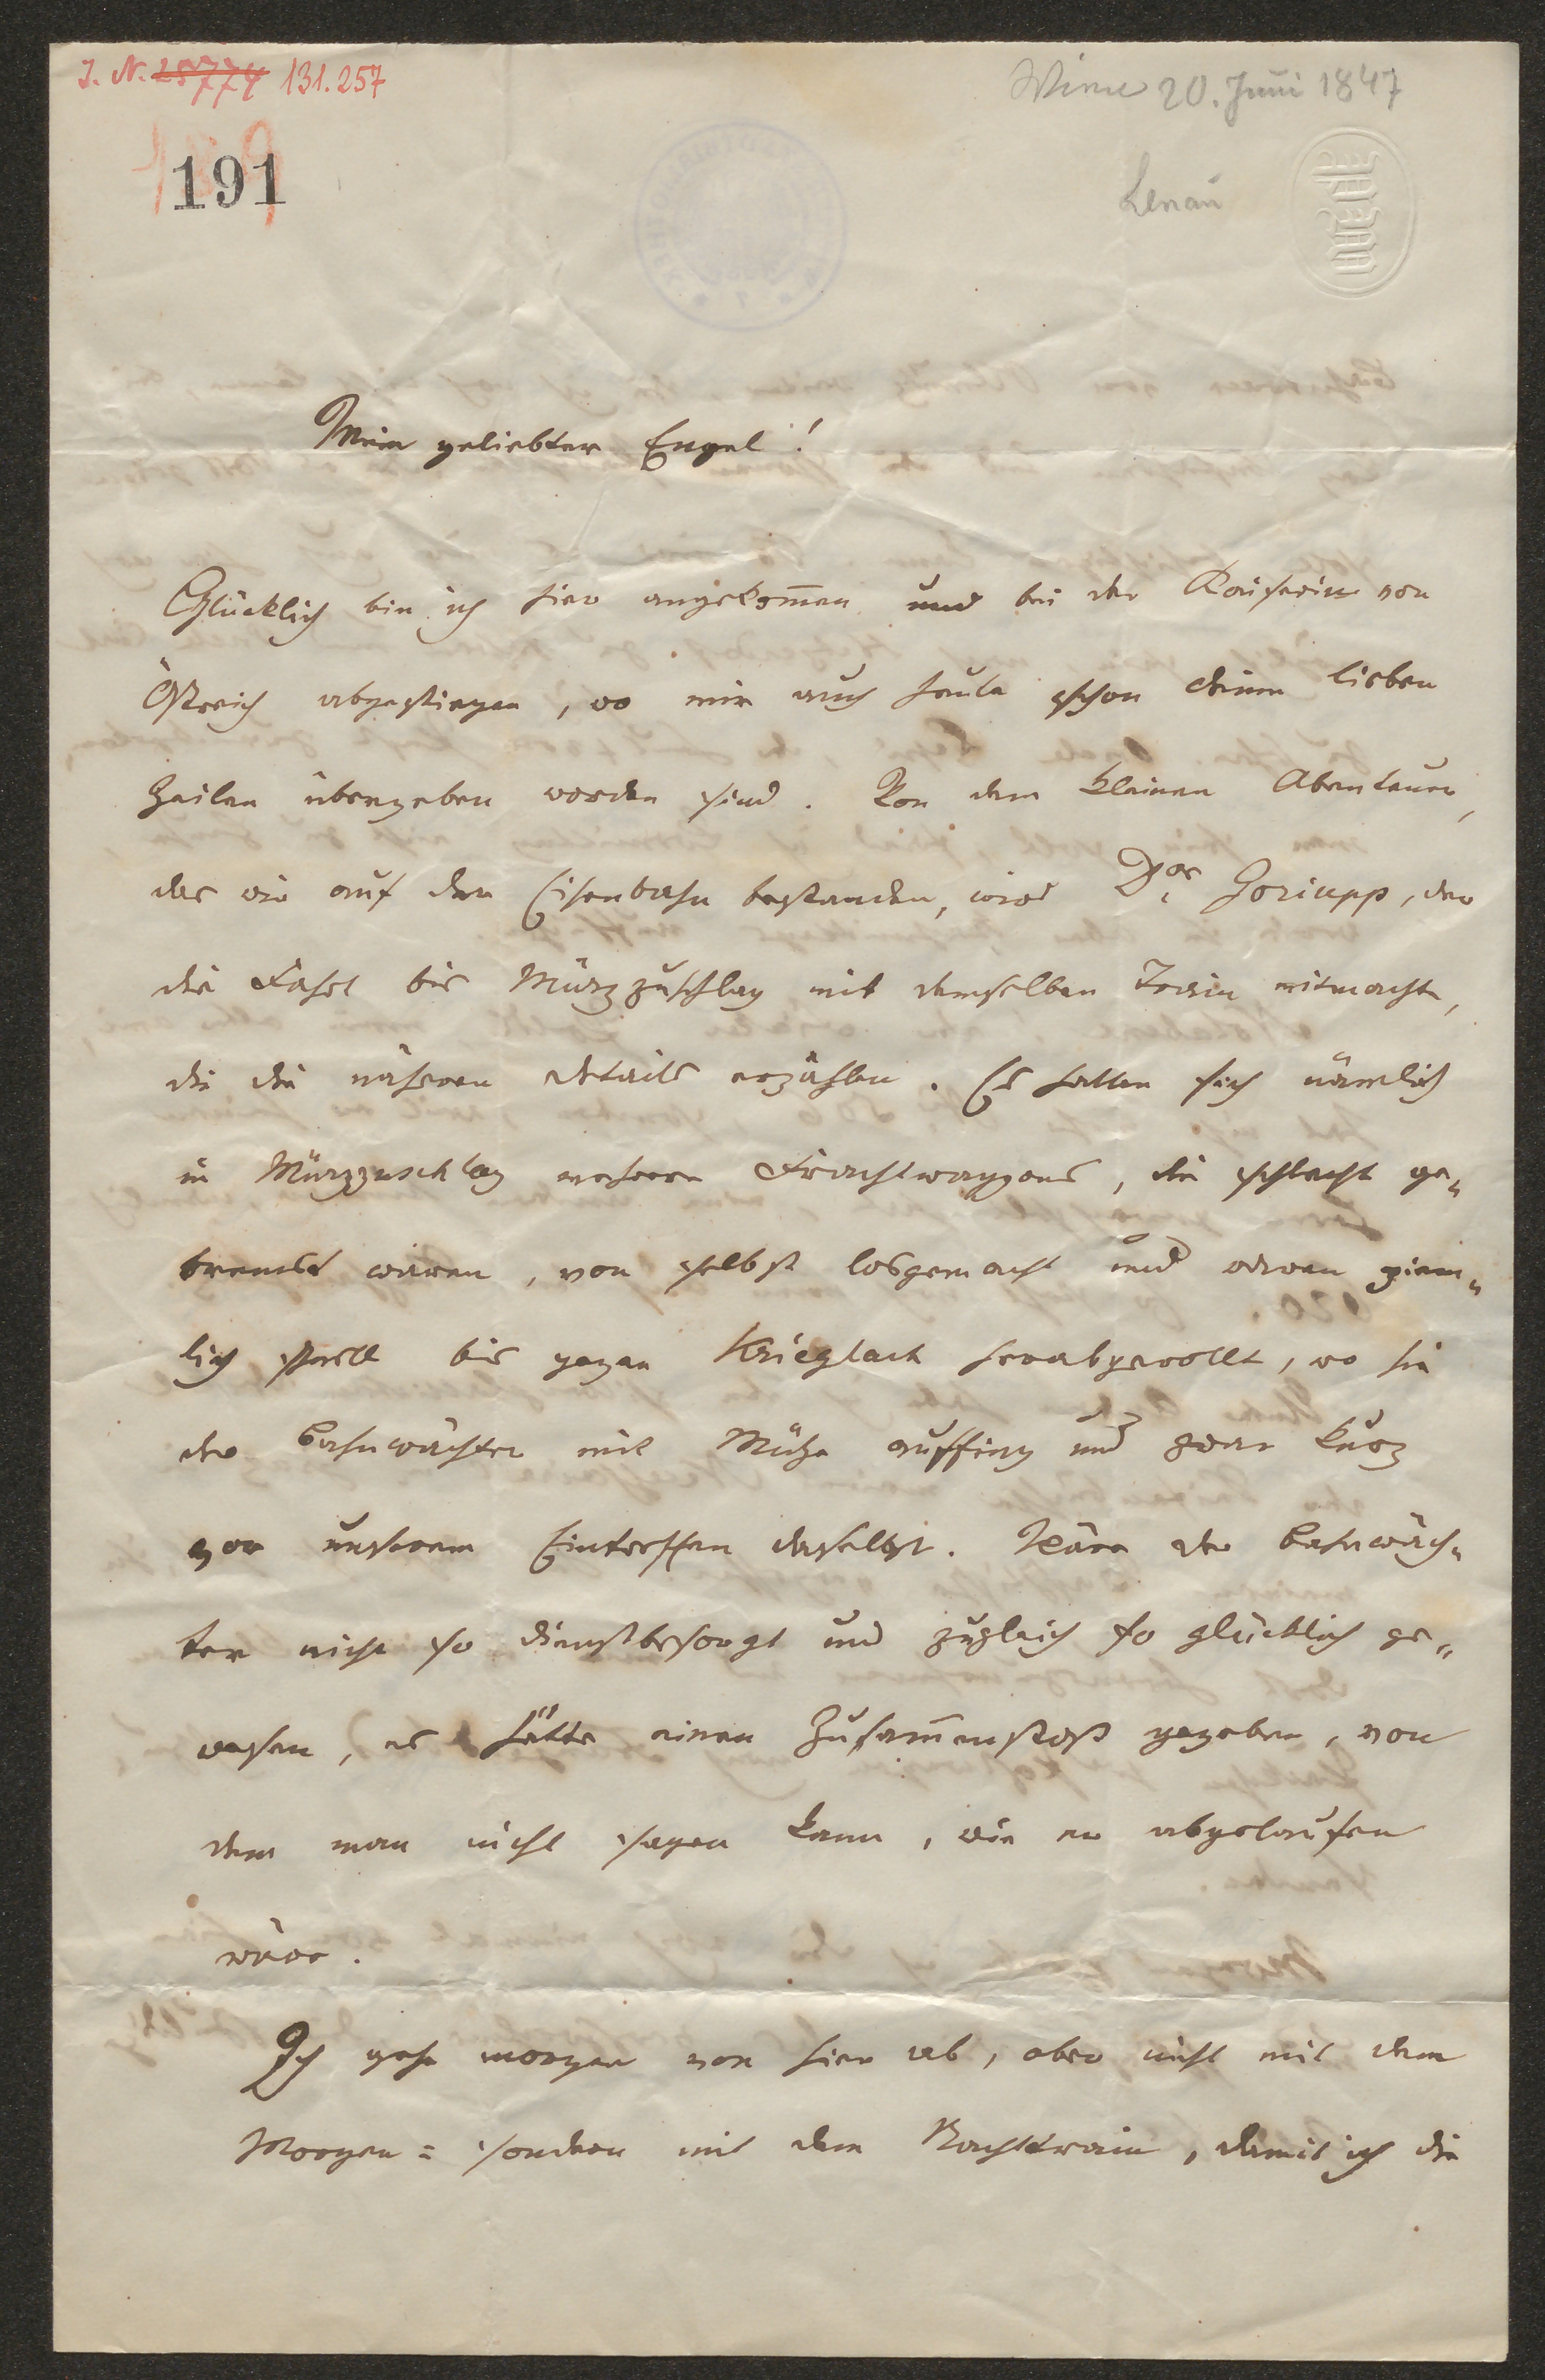 I. N. 25774 131.257
Wien 20. Juni 1847
191
Lenau
Mein geliebter Engel!
Glücklich bin ich hier angekom̅en und bei der Kaiserin von
Östreich abgestiegen, wo mir auch heute schon deine lieben
Zeilen übergeben worden sind. Von dem kleinen Abenteuer,
das wir auf der Eisenbahn bestanden, wird Dor Goriupp, der
die Fahrt bis Mürzzuschlag mit demselben Train mitmachte,
dir die näheren details erzählen. Es hatten sich nämlich
in Mürzzuschlag mehrere Frachtwaggons, die schlecht ge„
bremst waren, von selbst losgemacht und waren ziem„
lich schnell bis gegen Krieglach herabgerollt, wo sie
der Bahnwächter mit Mühe auffing und zwar kurz
vor unserem Eintreffen daselbst. Wäre der Bahnwäch„
ter nicht so dienstbesorgt und zugleich so glücklich ge„
wesen, es hätte einen Zusam̅enstoß gegeben, von
dem man nicht sagen kann, wie er abgelaufen
wäre.
Ich gehe morgen von hier ab, aber nicht mit dem
Morgen= sondern mit dem Nachttrain, damit ich die